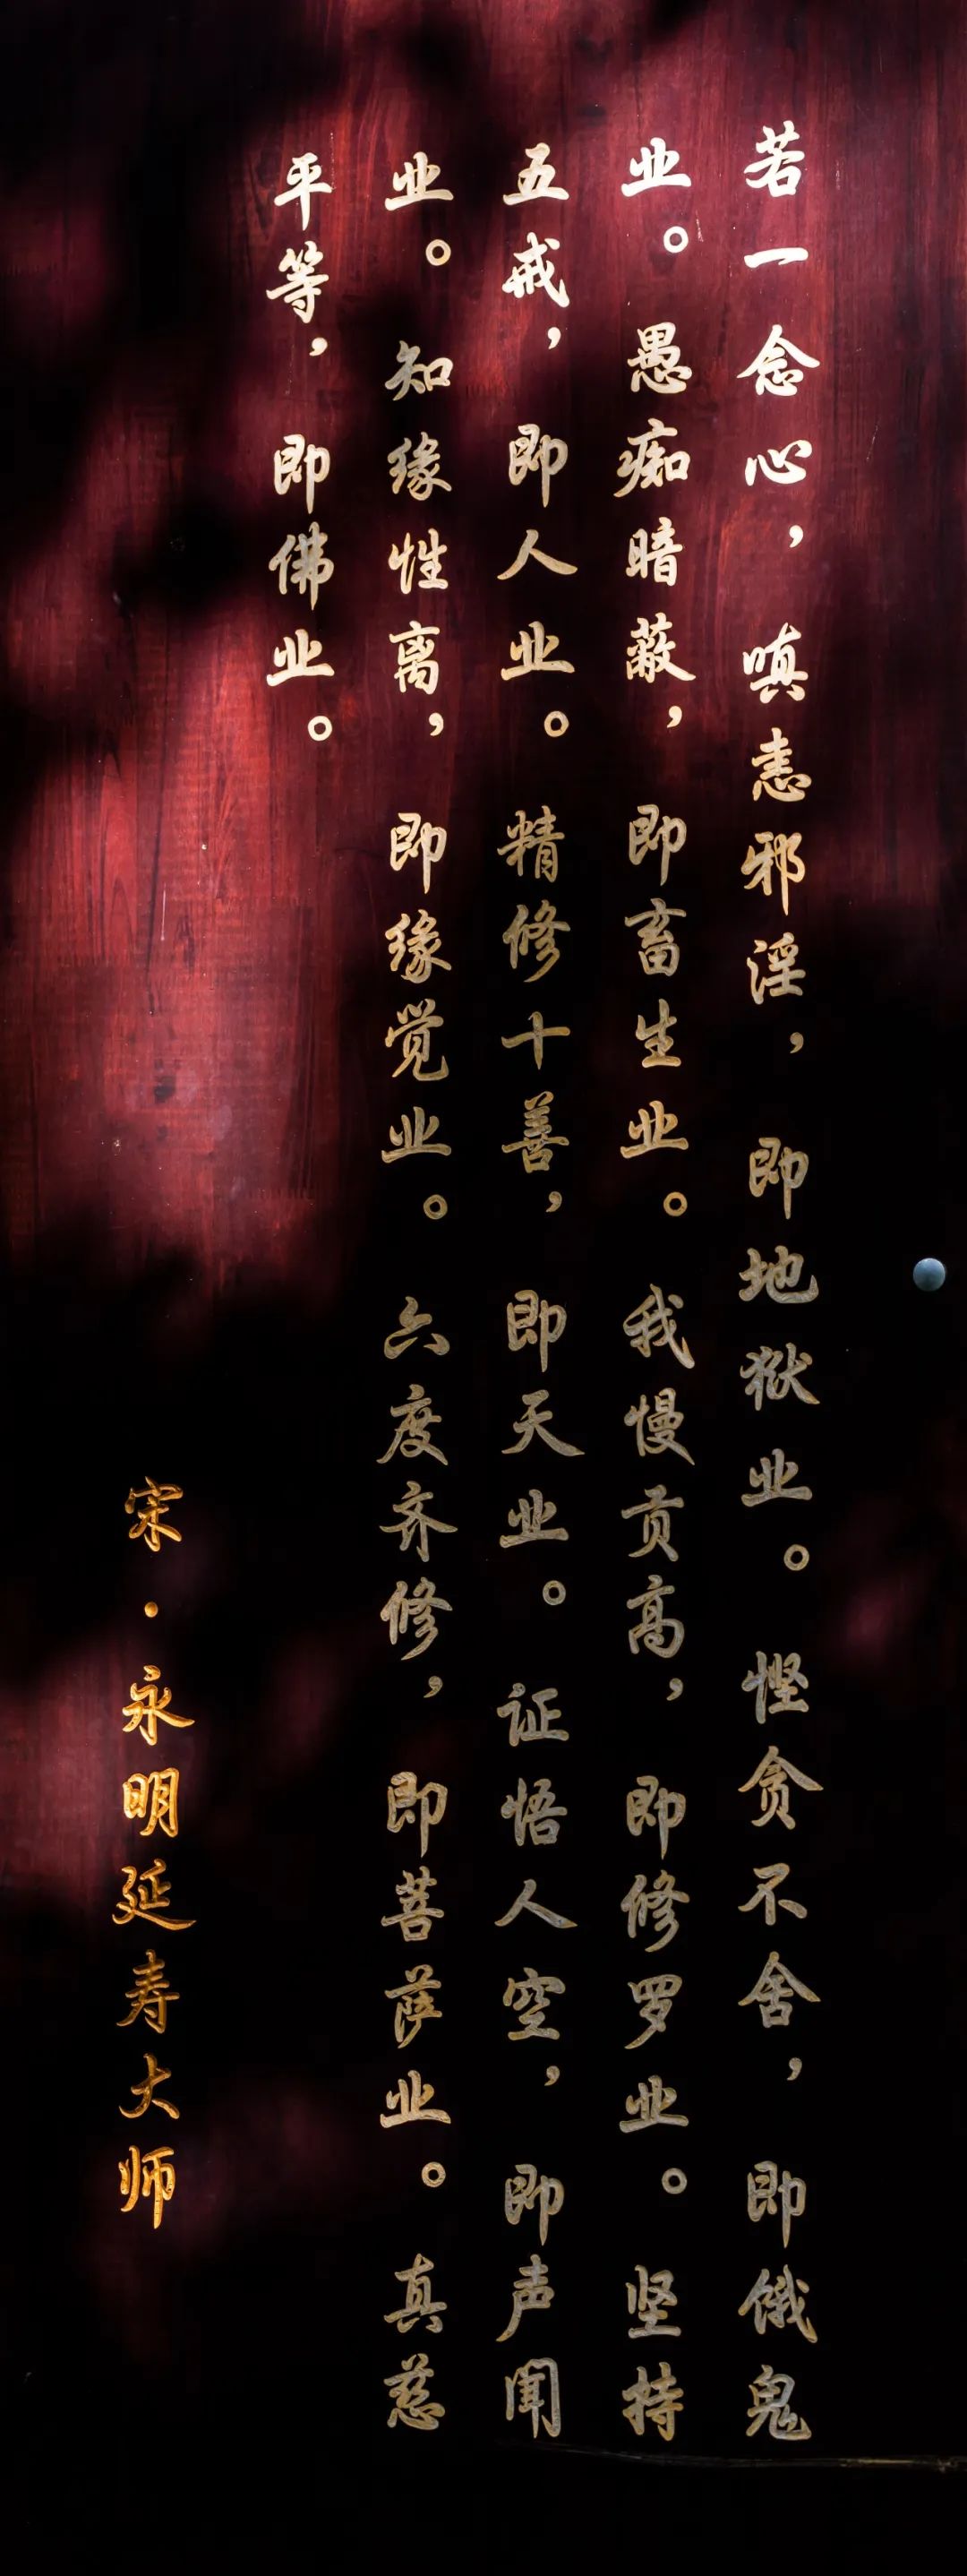 若一念心，嗔恚邪淫，即地狱业。悭贪不舍，即饿鬼
业。愚痴暗蔽，即畜生业。我慢贡高，即修罗业。坚持
五戒，即人业。精修十善，即天业。证悟人空，即声闻
业。知缘性离，即缘觉业。六度齐修，即菩萨业。真慈
平等，即佛业。
宋·永明延寿大师